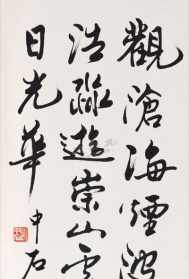 觀滄海煙波
浩淼遊崇山雲
日光華 中石